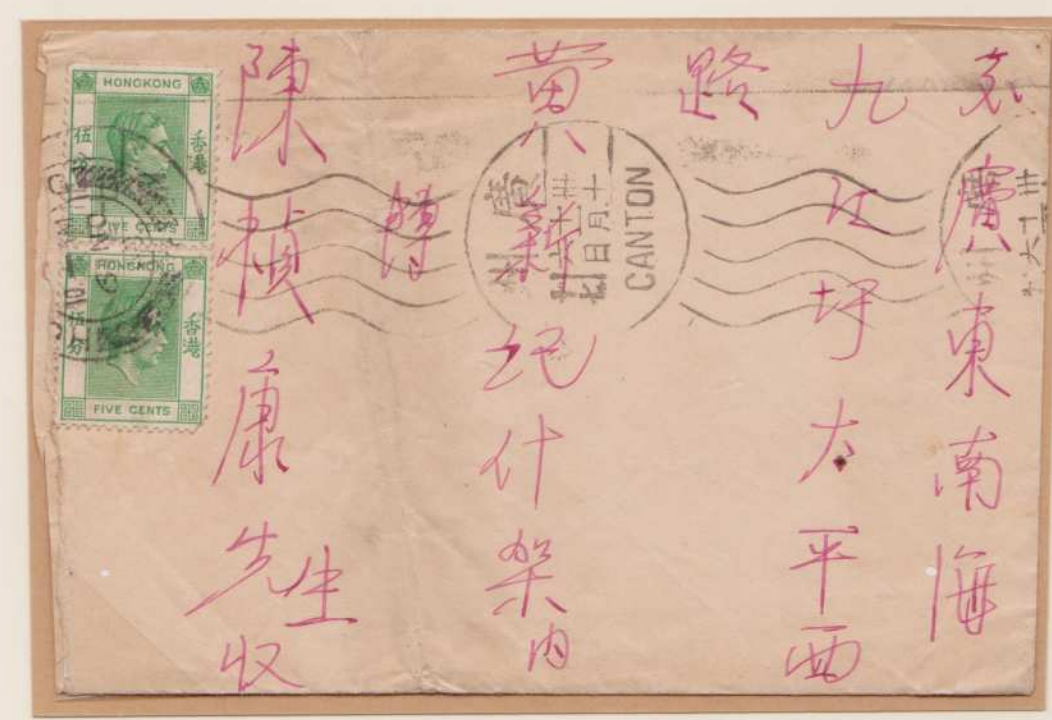 廣東南海
九江圩太平西
路
黄記什架内
轉
陳楨康先生收
HONGKONG
伍分
香港
FIVE CENTS
HONGKONG
伍分
香港
FIVE CENTS
廣州
CANTON